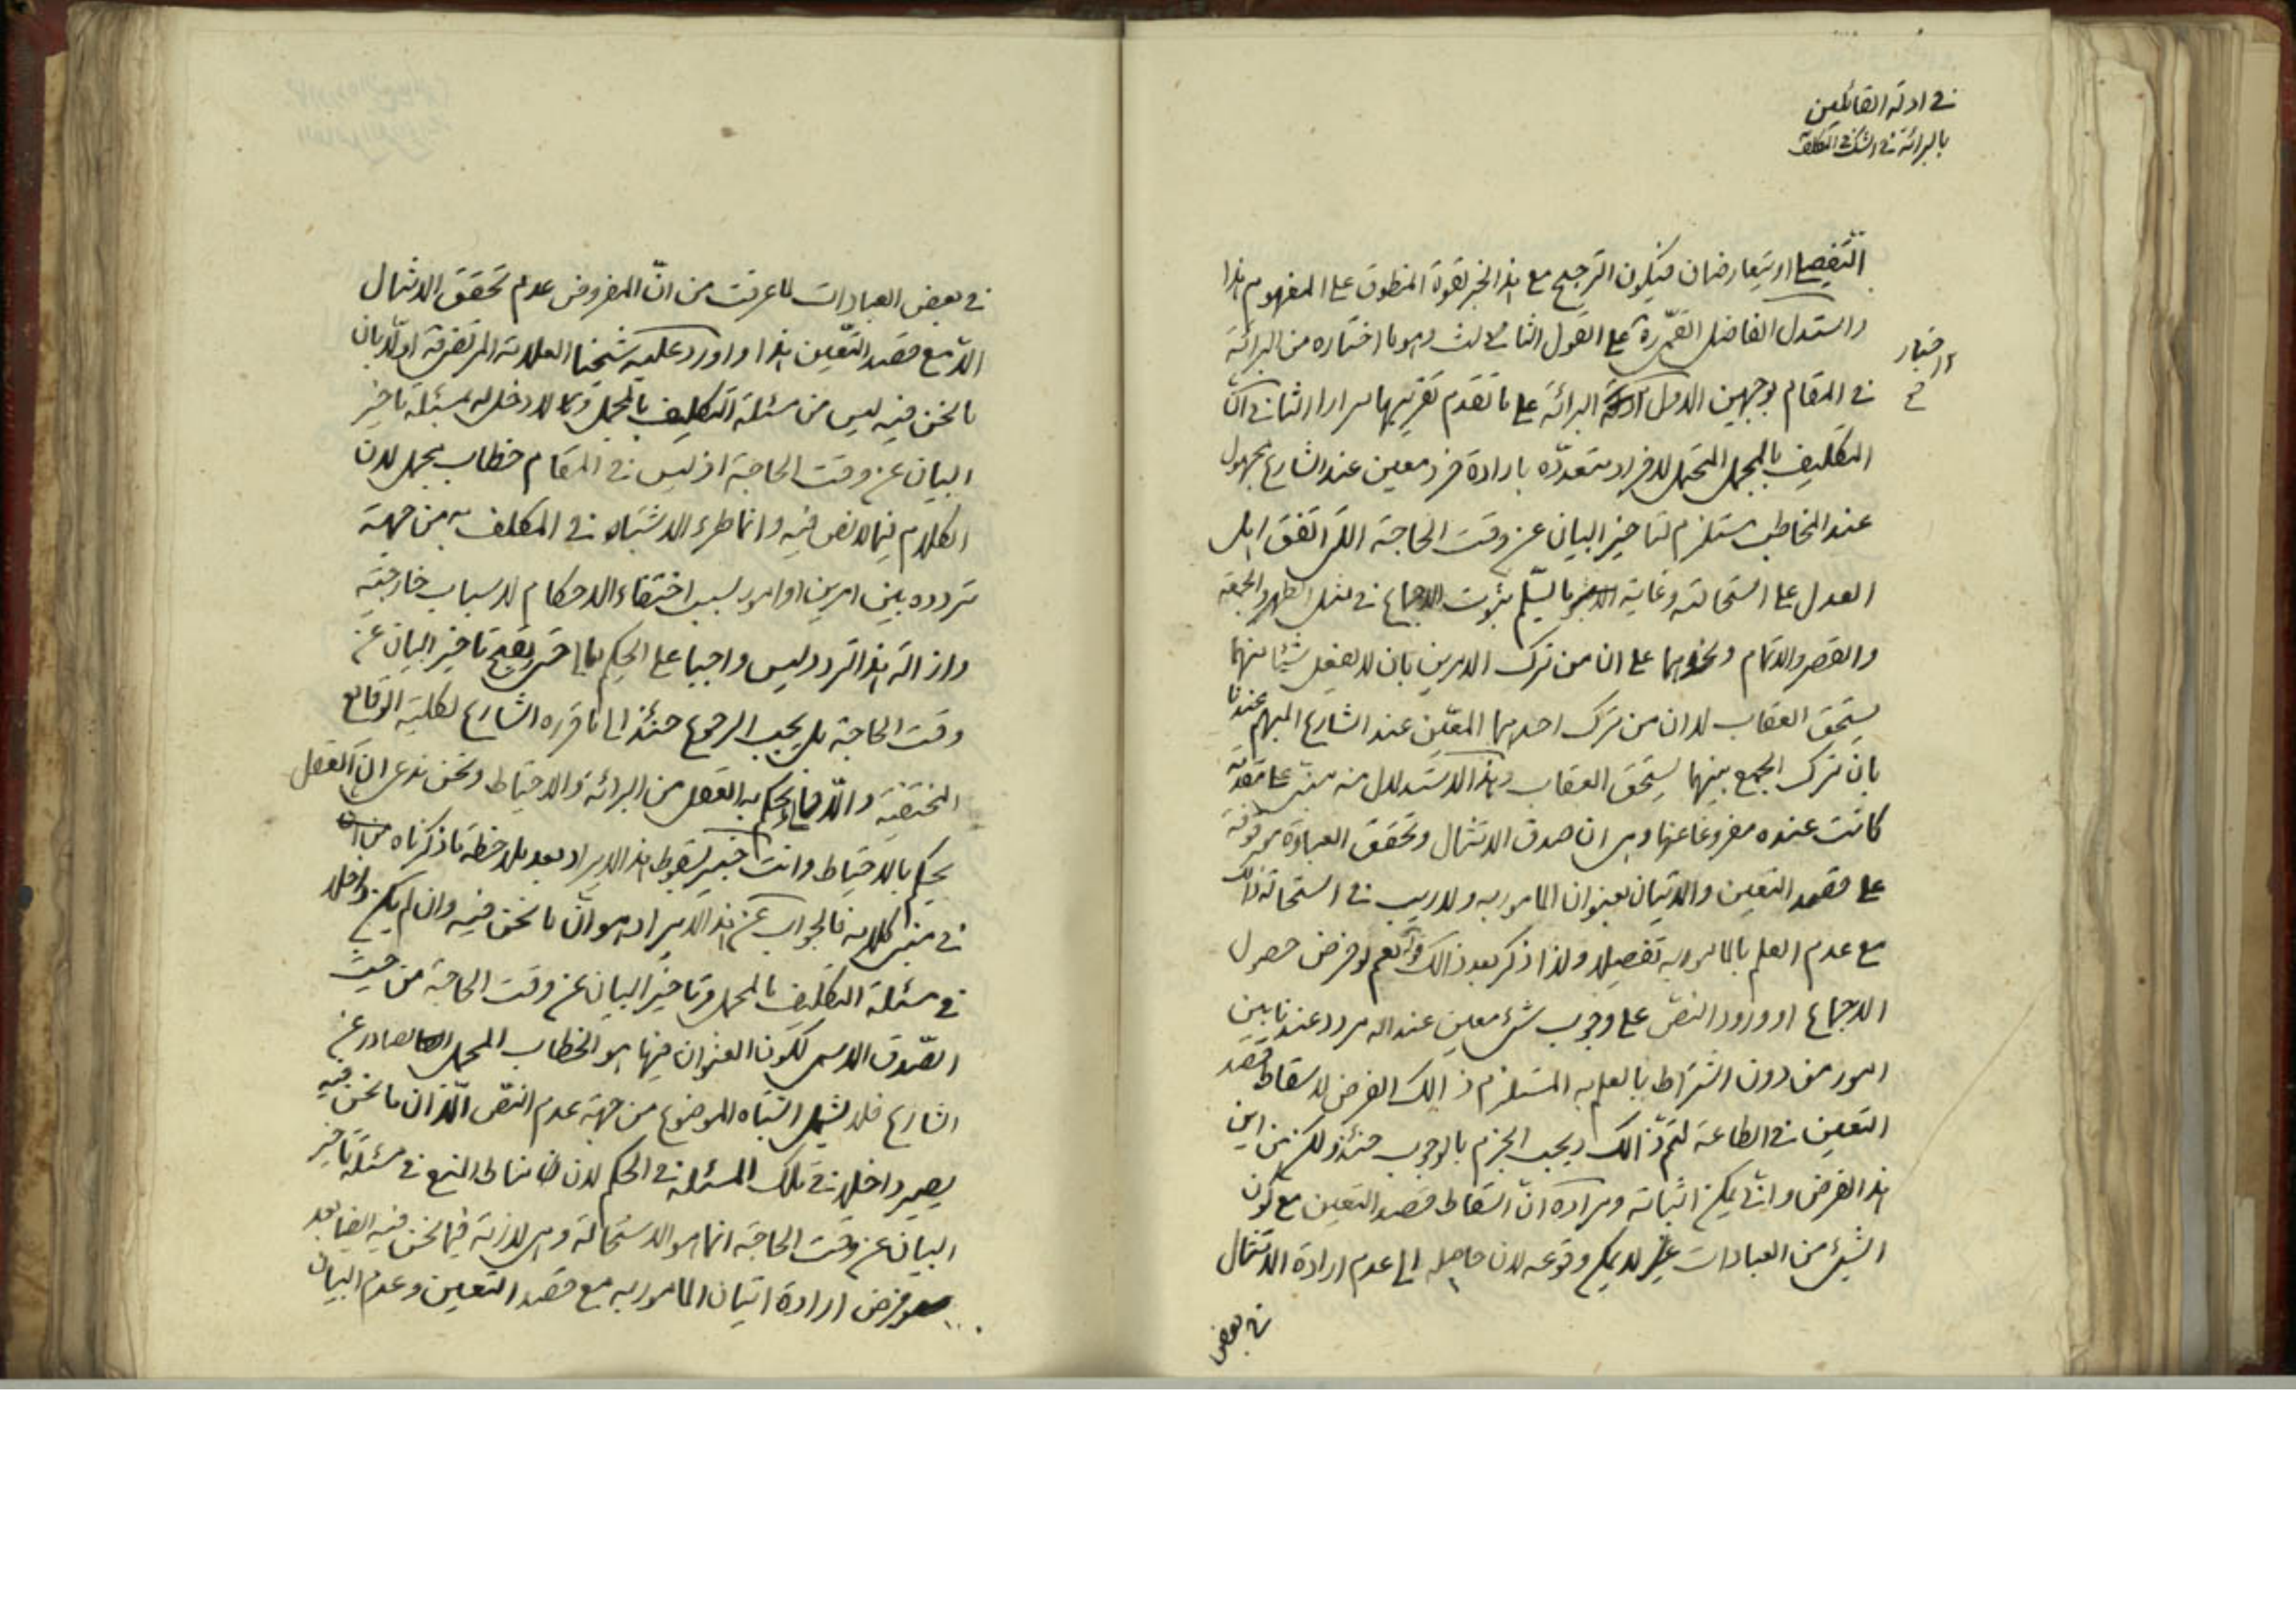 في ادلة القائلين
بالبرائة في الشك في التكليف
التفصيل او يتعارضان فيكون الترجيح مع هذا الخبر لقوة المنطوق على المفهوم هذا
واستدل الفاضل القمي ره على القول الثالث وهو ما اختاره من البرائة
في المقام بوجهين الاول البرائة على ما تقدم تقريبها مرارا الثاني ان
التكليف بالمجمل المحتمل لافراد متعددة بارادة فرد معين عند الشارع مجهول
عند المخاطب مستلزم لتاخير البيان عن وقت الحاجة الذي اتفق اهل
العدل على استحالته وغاية ما يسلم ثبوت الاجماع في مثل الظهر والجمعة
والقصر والاتمام ونحوهما على ان من ترك الامرين بان لا يفعل شيئا منهما
يستحق العقاب لا ان من ترك احدهما المعين عند الشارع المبهم عندنا
بان ترك الجمع بينهما يستحق العقاب وهذا الاستدلال منه مبني على مقدمة
كانت عنده مفروغا عنها وهي ان صدق الامتثال وتحقق العبادة موقوفة
على قصد التعيين والاتيان بعنوان المامور به ولا ريب في استحالة ذلك
مع عدم العلم بالمامور به تفصيلا ولذا ذكر بعد ذالك نعم لو فرض حصول
الاجماع او ورود النص على وجوب شيء معين عند الله مردد عندنا بين
امور من دون اشتراط بالعلم به المستلزم ذالك الفرض لاسقاط قصد
التعيين في الطاعة لتم ذالك ويجب الجزم بالوجوب حينئذ ولكن من اين
هذا الفرض وانى يمكن اثباته ومراده ان اسقاط قصد التعيين مع كون
الشيء من العبادات غير لا يمكن وقوعه لان حاصله الى عدم ارادة الامتثال
في بعض
في بعض العبادات لما عرفت من ان المفروض عدم تحقق الامتثال
الا مع قصد التعيين هذا واورد عليه شيخنا العلامة المرتضى قده اولا بان
ما نحن فيه ليس من مسئلة التكليف بالمجمل ولا دخل له بمسئلة تاخير
البيان عن وقت الحاجة اذ ليس في المقام خطاب مجمل لان
الكلام فيما لا نص فيه وانما طرء الاشتباه في المكلف به من جهة
تردده بين امرين او امور بسبب اختفاء الاحكام لاسباب خارجية
وازالة هذا التردد ليس واجبا على الحكيم تعالى حتى يقبح تاخير البيان عن
وقت الحاجة بل يجب الرجوع حينئذ الى ما قرره الشارع لكلية الوقايع
المختفية والا فما يحكم به العقل من البرائة والاحتياط ونحن ندعي ان العقل
يحكم بالاحتياط وانت خبير بسقوط هذا الايراد بعد ملاحظة ما ذكرناه
في مبنى كلامه فالجواب عن هذا الايراد هو ان ما نحن فيه وان لم يكن داخلا
في مسئلة التكليف بالمجمل وتاخير البيان عن وقت الحاجة من حيث
الصدق الاسمي لكون العنوان فيها هو الخطاب المجمل الصادر عن
الشارع فلا يشمل اشتباه الموضوع من جهة عدم النص الا ان ما نحن فيه
يصير داخلا في تلك المسئلة في الحكم لان مناط المنع في مسئلة تاخير
البيان عن وقت الحاجة انما هو الاستحالة وهي لازمة فيما نحن فيه ايضا بعد
فرض ارادة اتيان المامور به مع قصد التعيين وعدم البيان